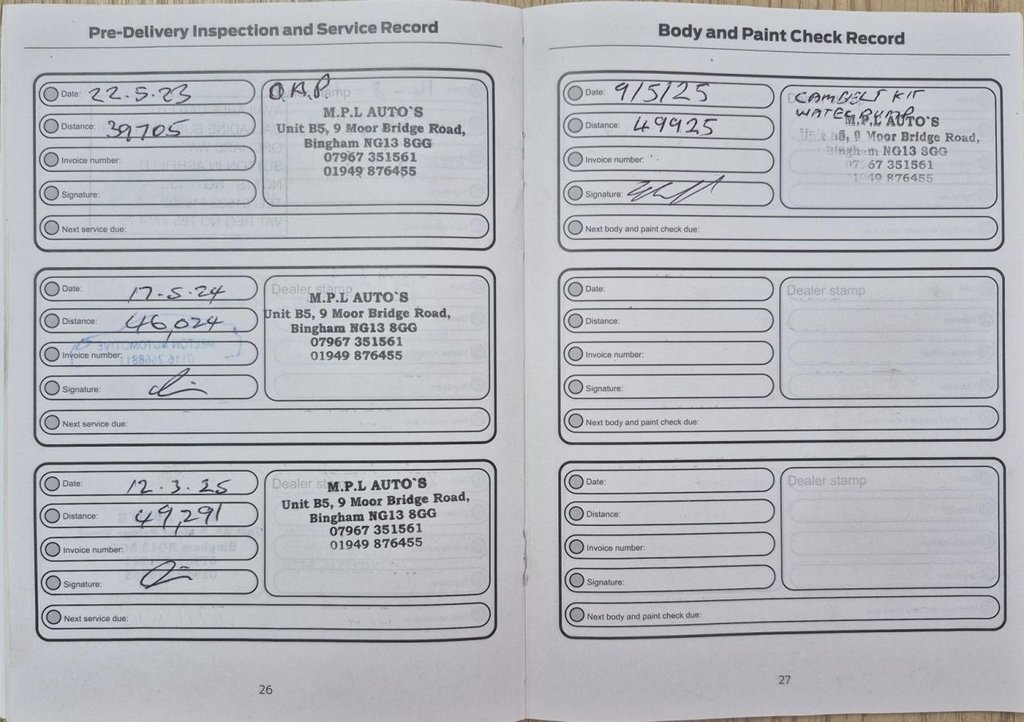 Pre-Delivery Inspection and Service Record
Date: 22.5.23
Distance: 39705
Invoice number:
Signature:
Next service due:
M.P.L AUTO`S
Unit B5, 9 Moor Bridge Road,
Bingham NG13 8GG
07967 351561
01949 876455
Date: 17-5-24
Distance: 46,024
Invoice number:
Signature:
Next service due:
Dealer stamp
M.P.L AUTO`S
Unit B5, 9 Moor Bridge Road,
Bingham NG13 8GG
07967 351561
01949 876455
Date: 12.3.25
Distance: 49,291
Invoice number:
Signature:
Next service due:
Dealer
M.P.L AUTO`S
Unit B5, 9 Moor Bridge Road,
Bingham NG13 8GG
07967 351561
01949 876455
26
Body and Paint Check Record
Date: 9/5/25
Distance: 49925
Invoice number:
Signature:
Next body and paint check due:
CAMBELT KIT
WATER PUMP
M.P.L AUTO`S
Unit B5, 9 Moor Bridge Road,
Bingham NG13 8GG
07967 351561
01949 876455
Date:
Distance:
Invoice number:
Signature:
Next body and paint check due:
Dealer stamp
Date:
Distance:
Invoice number:
Signature:
Next body and paint check due:
Dealer stamp
27